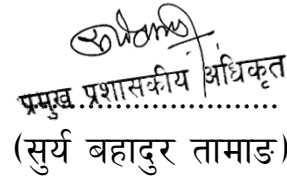 प्रमुख प्रशासकीय अधिकृत
(सुर्य बहादुर तामाङ)